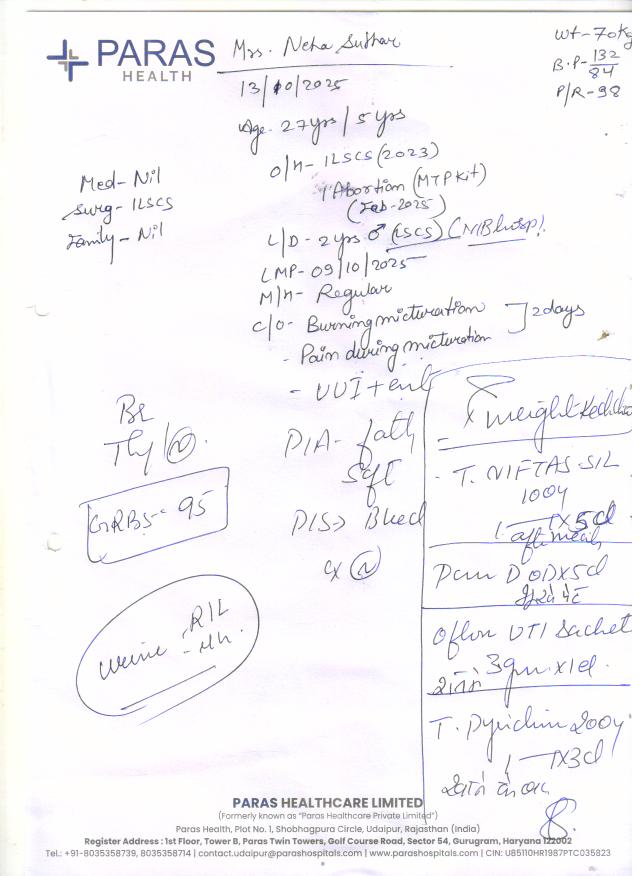 PARAS
HEALTH
Mrs. Neha Suthar
13/10/2025
Age- 27yrs / 5yrs
Wt- 70kg
B.P- 132/84
P/R- 98
Med- Nil
Surg- 1LSCS
Family- Nil
O/H- 1LSCS (2023)
1Abortion (MTP Kit)
(Feb-2025)
L/D- 2yrs ♂ (LSCS)
LMP- 09/10/2025
M/H- Regular
C/O- Burning micturation ] 2days
- Pain during micturation
- UUI +
Br
Thy / (N).
GRBS- 95
Urine - R/L
P/A-
Soft
P/S> Bleed
cx (N)
weight
- T. NIFTAS
100
1 — 1 X 5d
D OD X 5d
UTI Sachet
3gm x 1d.
T. 200
1 — 1 X 3d
PARAS HEALTHCARE LIMITED
(Formerly known as "Paras Healthcare Private Limited")
Paras Health, Plot No. 1, Shobhagpura Circle, Udaipur, Rajasthan (India)
Register Address : 1st Floor, Tower B, Paras Twin Towers, Golf Course Road, Sector 54, Gurugram, Haryana 122002
Tel.: +91-8035358739, 8035358714 | contact.udaipur@parashospitals.com | www.parashospitals.com | CIN: U85110HR1987PTC035823